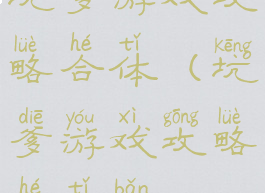 lüè hé tǐ kēng
略合体（坑
diē yóu xì gōng lüè
爹游戏攻略
hé tǐ bǎn